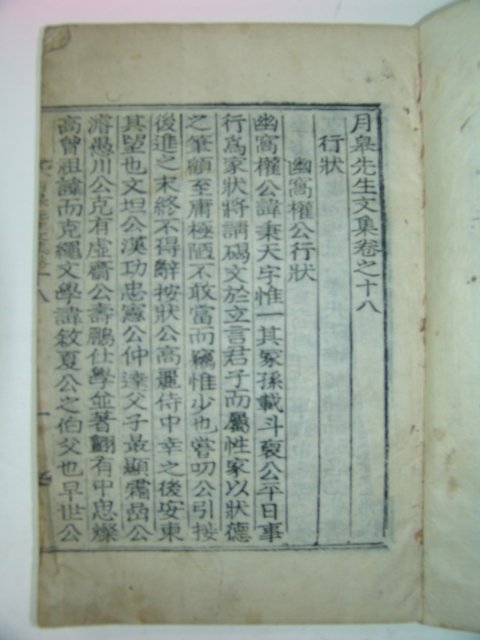 月皐先生文集卷之十八
行狀
幽窩權公行狀
幽窩權公諱秉天字惟一其冢孫載斗裒公平日事
行爲家狀將請碣文於立言君子而屬性家以狀德
之筆顧至庸極陋不敢當而竊惟少也嘗叨公引接
後進之末終不得辭按狀公高麗侍中幸之後安東
其望也文坦公漢功忠憲公仲達父子最顯霜嵒公
濬愚川公克有虛齋公壽鵬仕學並著翻有中思燦
高曾祖諱而克繩文學諱敍夏公之伯父也早世公